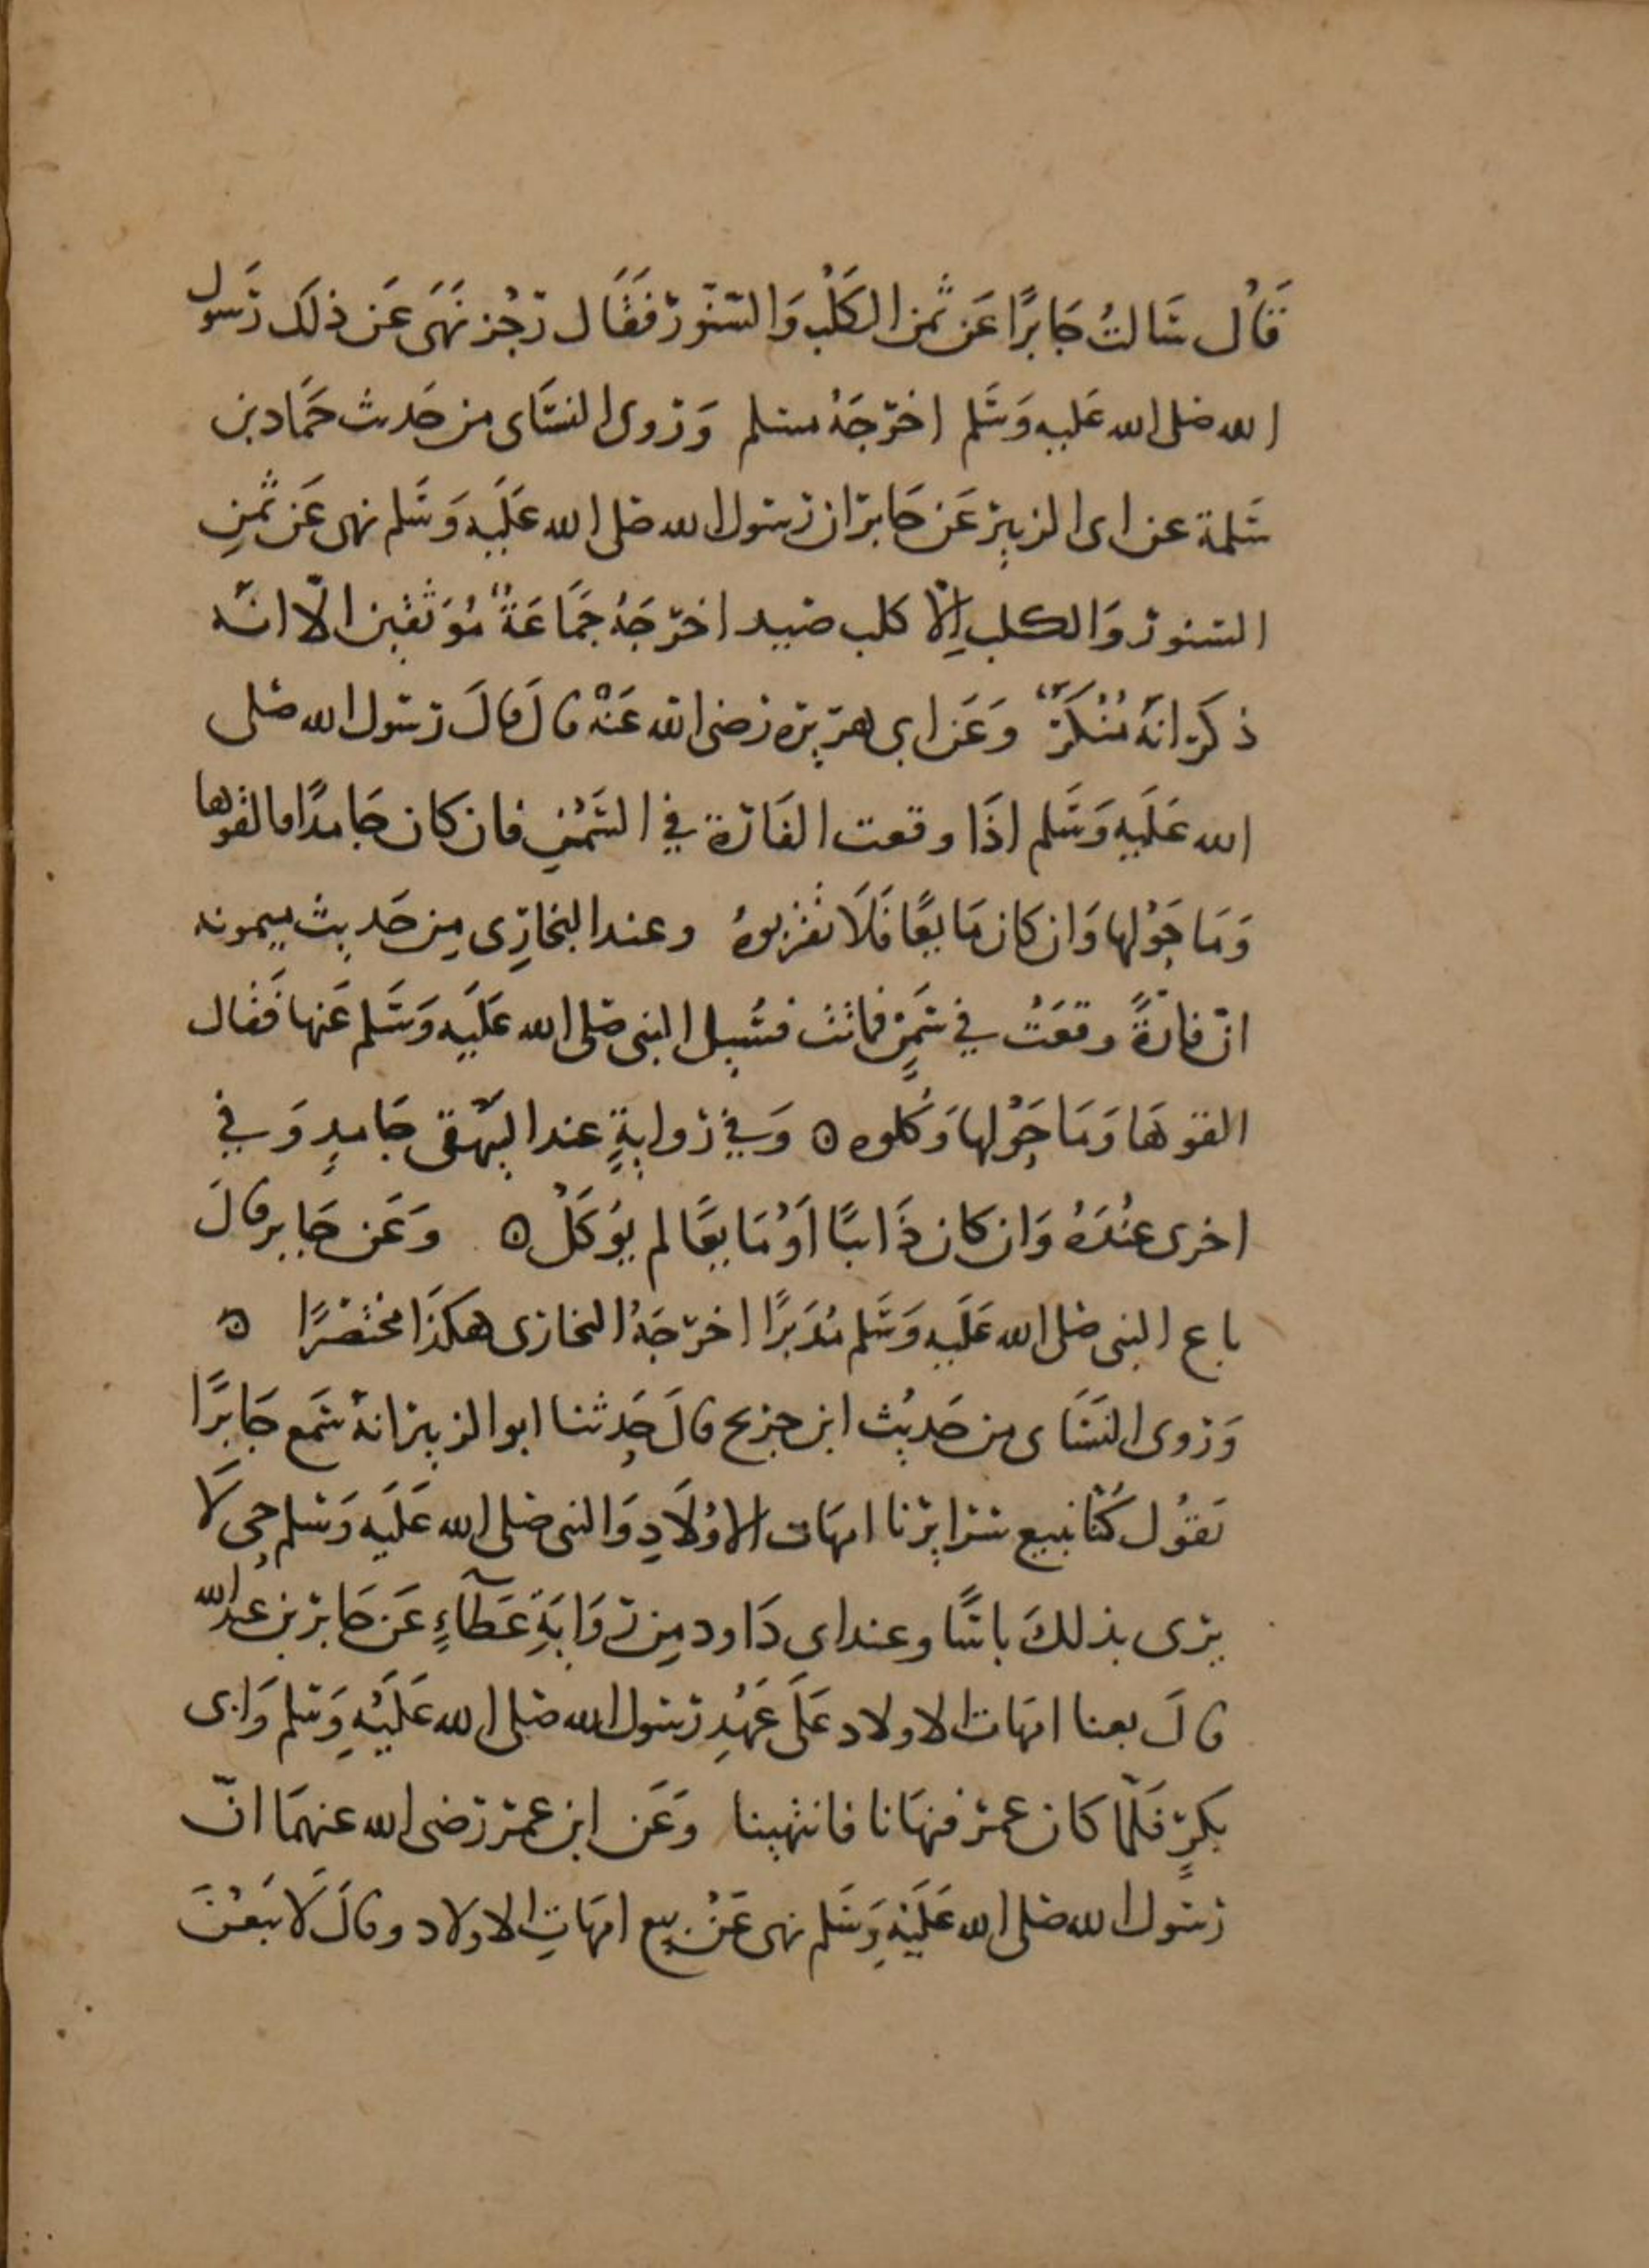 قَالَ سَالتُ جَابرًا عَن ثمَن الكَلْب وَالسّنّور فَقَال زجُر نَهَى عَن ذلَك رَسول
الله صلى الله عَليه وَسَلم اخرَجَهُ مسلم وَروى النسَاى من حَديث حَمَّاد بن
سَلمة عن ابى الزبير عَن جَابر ان رسول الله صلى الله عَلَيه وَسَلم نهى عَن ثمنِ
السنور وَالكلب اِلّا كلب صَيد اخرَجَهُ جَمَاعَةٌ مُوَثقين الّا انّه
ذكَر انهُ مُنْكَرٌ وَعَن ابى هرَيره رضى الله عَنْهُ قالَ قالَ رسول الله صَلى
الله عَلَيهِ وَسَلم اذَا وقعت الفَارة في السَّمْنِ فان كان جَامدًا فالقوها
وَمَا حَوْلها وَان كان مَايعًا فَلَا تقربوهُ وعند البخارِى مِن حَديث ميمونه
انّ فارةً وقعَتْ في سَمنٍ فماتت فسُيل النبى صَلى الله عَلَيهِ وَسَلم عَنها فقَال
القوهَا وَمَا حَوْلها وَكُلوه ۵ وَفي رواَيةٍ عند البَيهقى جَامدٍ وَفي
اخرى عنْدَهُ وَان كان ذَايبًا اَوْ مَايعًا لم يوكَلْ ۵ وَعَن جَابرٍ قالَ
باع النبى صَلى الله عَلَيهِ وَسَلم مُدَبرًا اخرَجَهُ البخارى هكَذَا مختصَرًا ۵
وَروى النسَاى من حَديث ابن جريج قالَ حَدثنا ابو الزبير انهُ سَمع جَابرًا
يَقوُل كُنا نبيع سَرَاريْنا امهَات الاوْلَادِ وَالنبى صَلى الله عَلَيهِ وَسَلم حى لَا
يرَى بذلكَ باسًا وعند ابى دَاود مِن روَايَةِ عَطَآءٍ عَن جَابر بن عبد الله
قالَ بعنا امهَات الاولاد عَلَى عَهْدِ رسول الله صَلى الله عَلَيْهِ وَسَلم وَابى
بَكرٍ فَلمّا كان عمر فنهَانا فانتهينا وَعَن ابن عمرَ رَضى الله عنهمَا انّ
رسَول الله صَلى الله عَلَيهِ وَسَلم نهى عَنْ بيع امهَاتِ الاولاد وقالَ لَا يُبَعْنَ